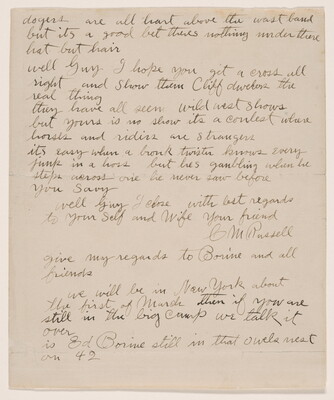 dogers are all hart above the wast band
but its a good bet theres nothing under there
hat but hair
well Guy I hope you get a cross all
right and Show them Cliff dwelers the
real thing
they have all seen wild west shows
but yours is no show its a contest where
horses and riders are strangers
its easy when a bronk twister knows every
jump in a hoss but hes gambling when he
steps across one he never saw before
you Savy
well Guy I close with best regards
to your self and Wife your friend
C M Russell
give my regards to Borine and all
friends
we will be in New York about
the first of March then if you are
still in the big camp we talk it
over
is Ed Borine still in that owels nest
on 42